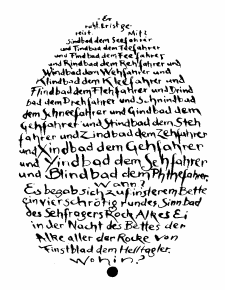 Er
ruht. Er ist ge-
reist. Mit
Sindbad dem Seefahrer
und Tindbad dem Teefahrer
und Findbad dem Feefahrer
und Rindbad dem Rehfahrer und
Windbad dem Wehfahrer und
Klindbad dem Kleefahrer und
Flindbad dem Flehfahrer und Drind
bad dem Drehfahrer und Schnindbad
dem Schneefahrer und Gindbad dem
Gehfahrer und Stindbad dem Steh
fahrer und Zindbad dem Zehfahrer
und Xindbad dem Gehfahrer
und Yindbad dem Sehfahrer
und Blindbad dem Phthefahrer.
Wann?
Es begab sich zuf insteren Bette
ein vierschrötig rundes. Sinnbad
des Sehfrogers Rock Alkes Ei
in der Nacht des Bettes der
Alke aller der Rocke von
Finstblad dem Helltagler.
Wohin?